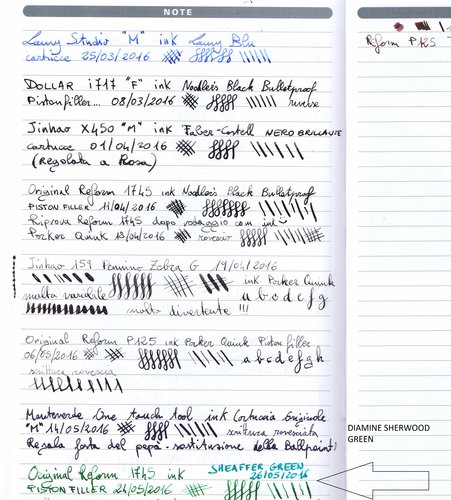 NOTE
Lamy Studio "M" ink Lamy Blu
cartucce 25/03/2016
DOLLAR i717 "F" ink Noodler's Black Bulletproof
Pistonfiller... 08/03/2016 reverse
Jinhao X450 "M" ink Faber-Castell NERO BRILLANTE
cartucce 01/04/2016
(Regolata a Rosa)
Original Reform 1745 ink Noodler's Black Bulletproof
PISTON FILLER 11/04/2016
Riprova Reform 1745 dopo rodaggio con ink
Parker Quink 13/04/2016 rovescio
Jinhao 159 Pennino Zebra G 19/04/2016
ink Parker Quink
molto variabile a b c d e f g
molto divertente !!!
Original Reform P125 ink Parker Quink Piston filler
06/05/2016 a b c d e f g h
scrittura rovescia
Monteverde One touch tool ink Cartuccia Originale
"M" 14/05/2016 scrittura rovesciata
Regalo festa del papà - sostituzione della Ballpoint!
Original Reform 1745 ink SHEAFFER GREEN
PISTON FILLER 26/05/2016 26/05/2016
Reform P125
DIAMINE SHERWOOD
GREEN